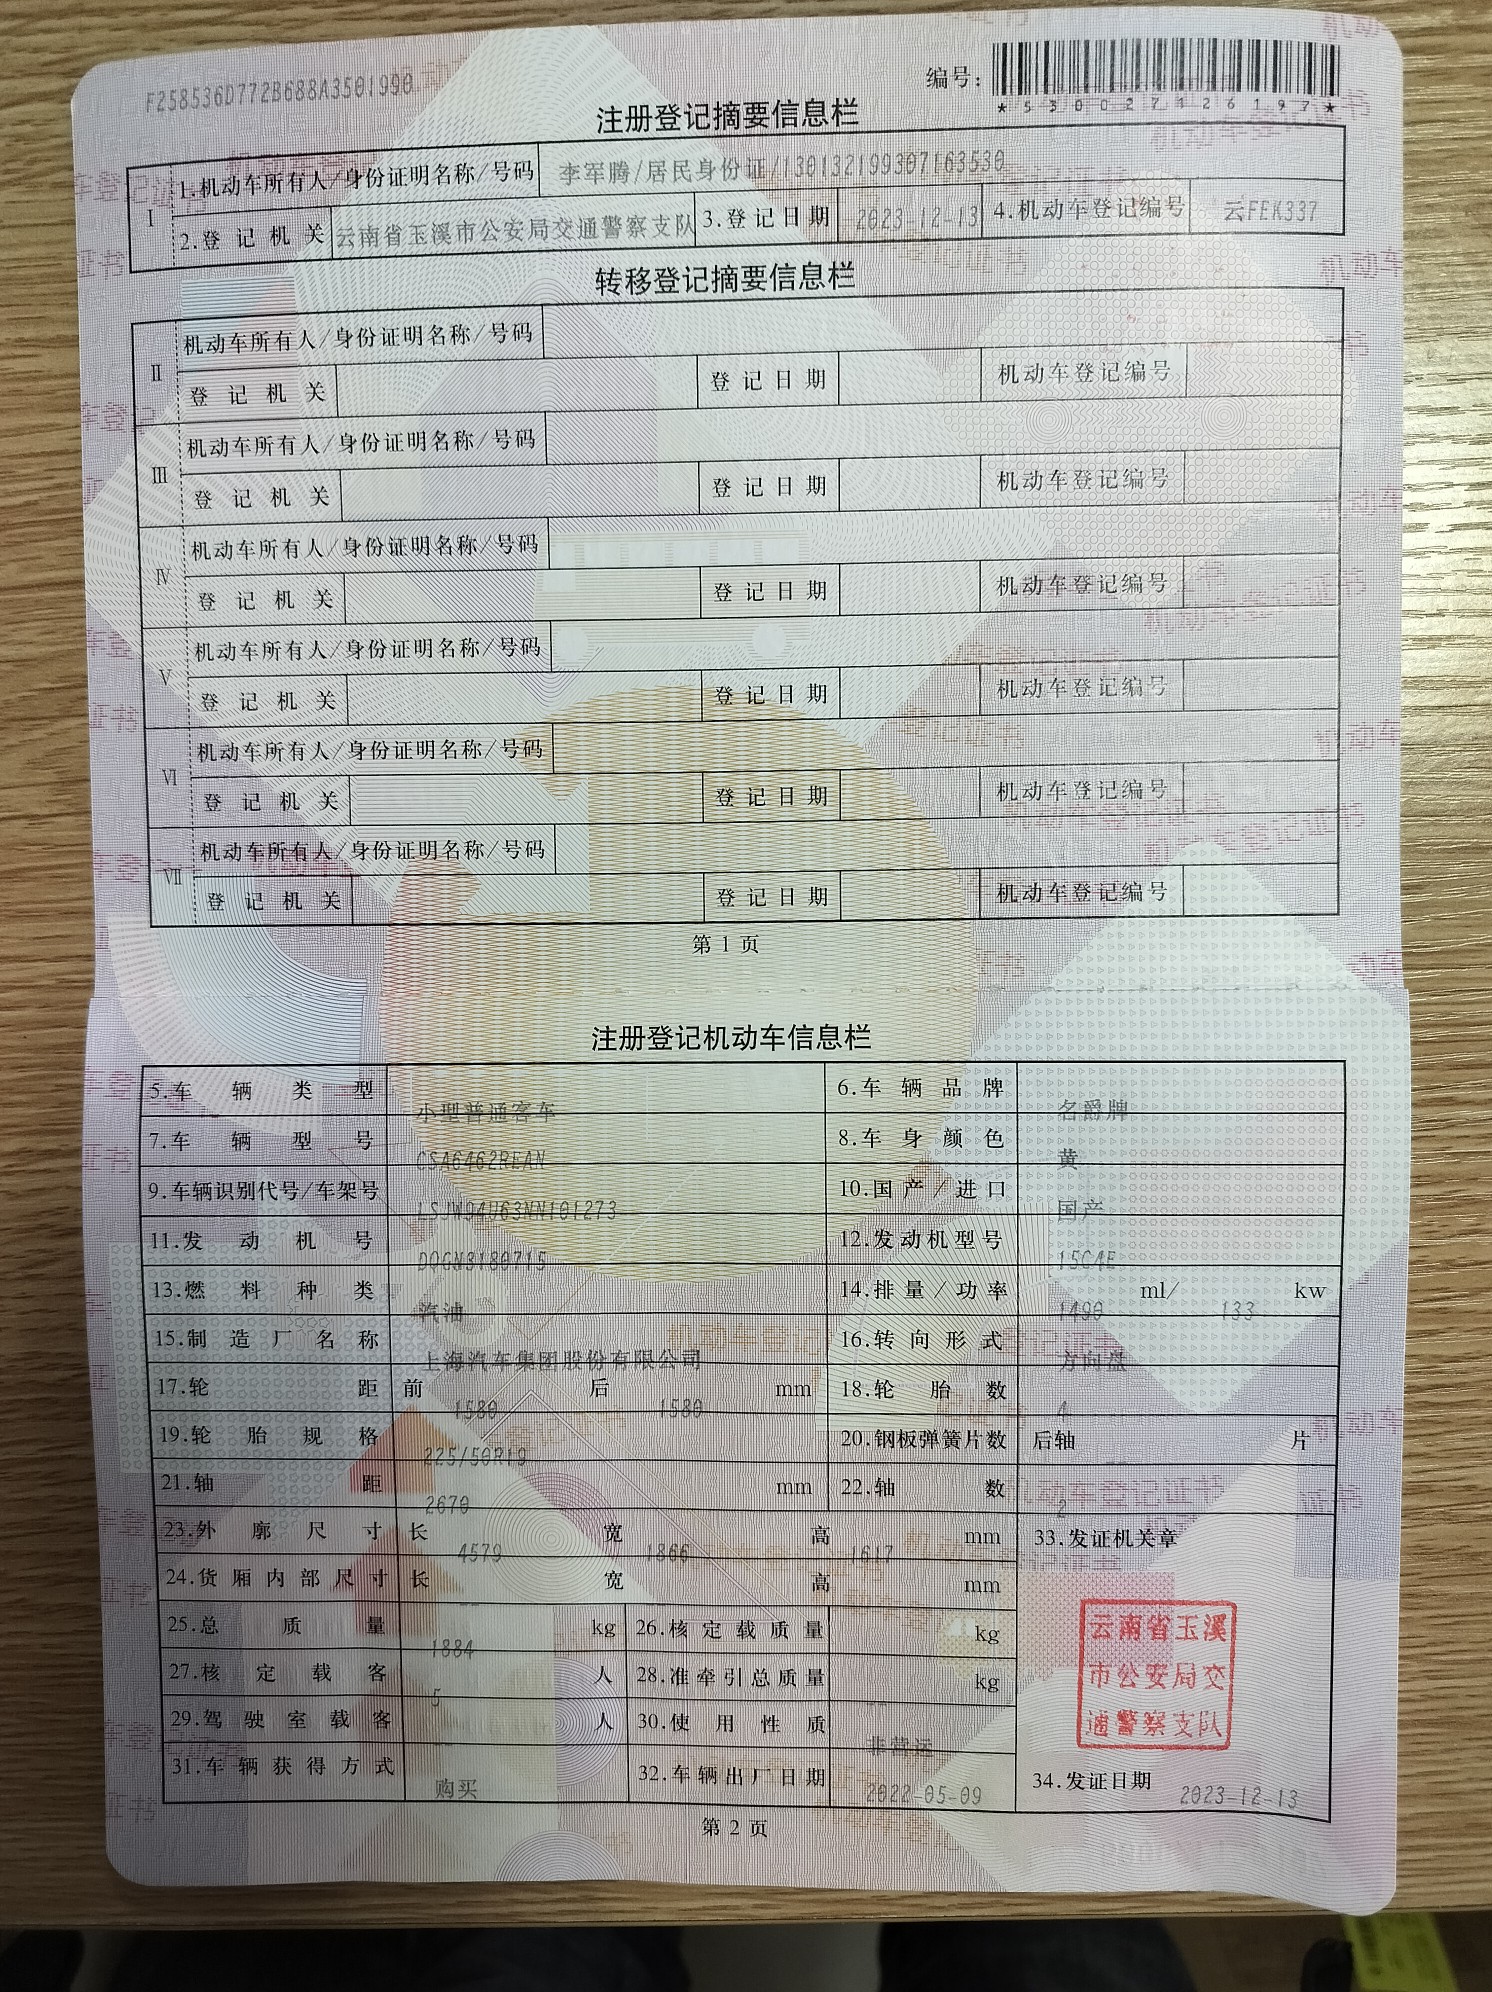 F258536D772B688A3501990
编号:
*530027126197*
注册登记摘要信息栏
I
1.机动车所有人/身份证明名称/号码 李军腾/居民身份证/130132199307163530
2.登记机关 云南省玉溪市公安局交通警察支队 3.登记日期 2023-12-13 4.机动车登记编号 云FEK337
转移登记摘要信息栏
II
机动车所有人/身份证明名称/号码
登记机关 登记日期 机动车登记编号
III
机动车所有人/身份证明名称/号码
登记机关 登记日期 机动车登记编号
IV
机动车所有人/身份证明名称/号码
登记机关 登记日期 机动车登记编号
V
机动车所有人/身份证明名称/号码
登记机关 登记日期 机动车登记编号
VI
机动车所有人/身份证明名称/号码
登记机关 登记日期 机动车登记编号
VII
机动车所有人/身份证明名称/号码
登记机关 登记日期 机动车登记编号
第 1 页
注册登记机动车信息栏
5.车辆类型 小型普通客车 6.车辆品牌 名爵牌
7.车辆型号 CSA6462REAN 8.车身颜色 黄
9.车辆识别代号/车架号 LSJW94U63NN101273 10.国产/进口 国产
11.发动机号 DQGN3180715 12.发动机型号 15C4E
13.燃料种类 汽油 14.排量/功率 1490 ml/ 133 kw
15.制造厂名称 上海汽车集团股份有限公司 16.转向形式 方向盘
17.轮距 前 1580 后 1580 mm 18.轮胎数 4
19.轮胎规格 225/50R19 20.钢板弹簧片数 后轴 -- 片
21.轴距 2670 mm 22.轴数 2
23.外廓尺寸 长 4579 宽 1866 高 1617 mm 33.发证机关章
24.货厢内部尺寸 长 宽 高 mm
25.总质量 1884 kg 26.核定载质量 kg
27.核定载客 5 人 28.准牵引总质量 kg
29.驾驶室载客 -- 人 30.使用性质 非营运
31.车辆获得方式 购买 32.车辆出厂日期 2022-05-09 34.发证日期 2023-12-13
云南省玉溪
市公安局交
通警察支队
第 2 页